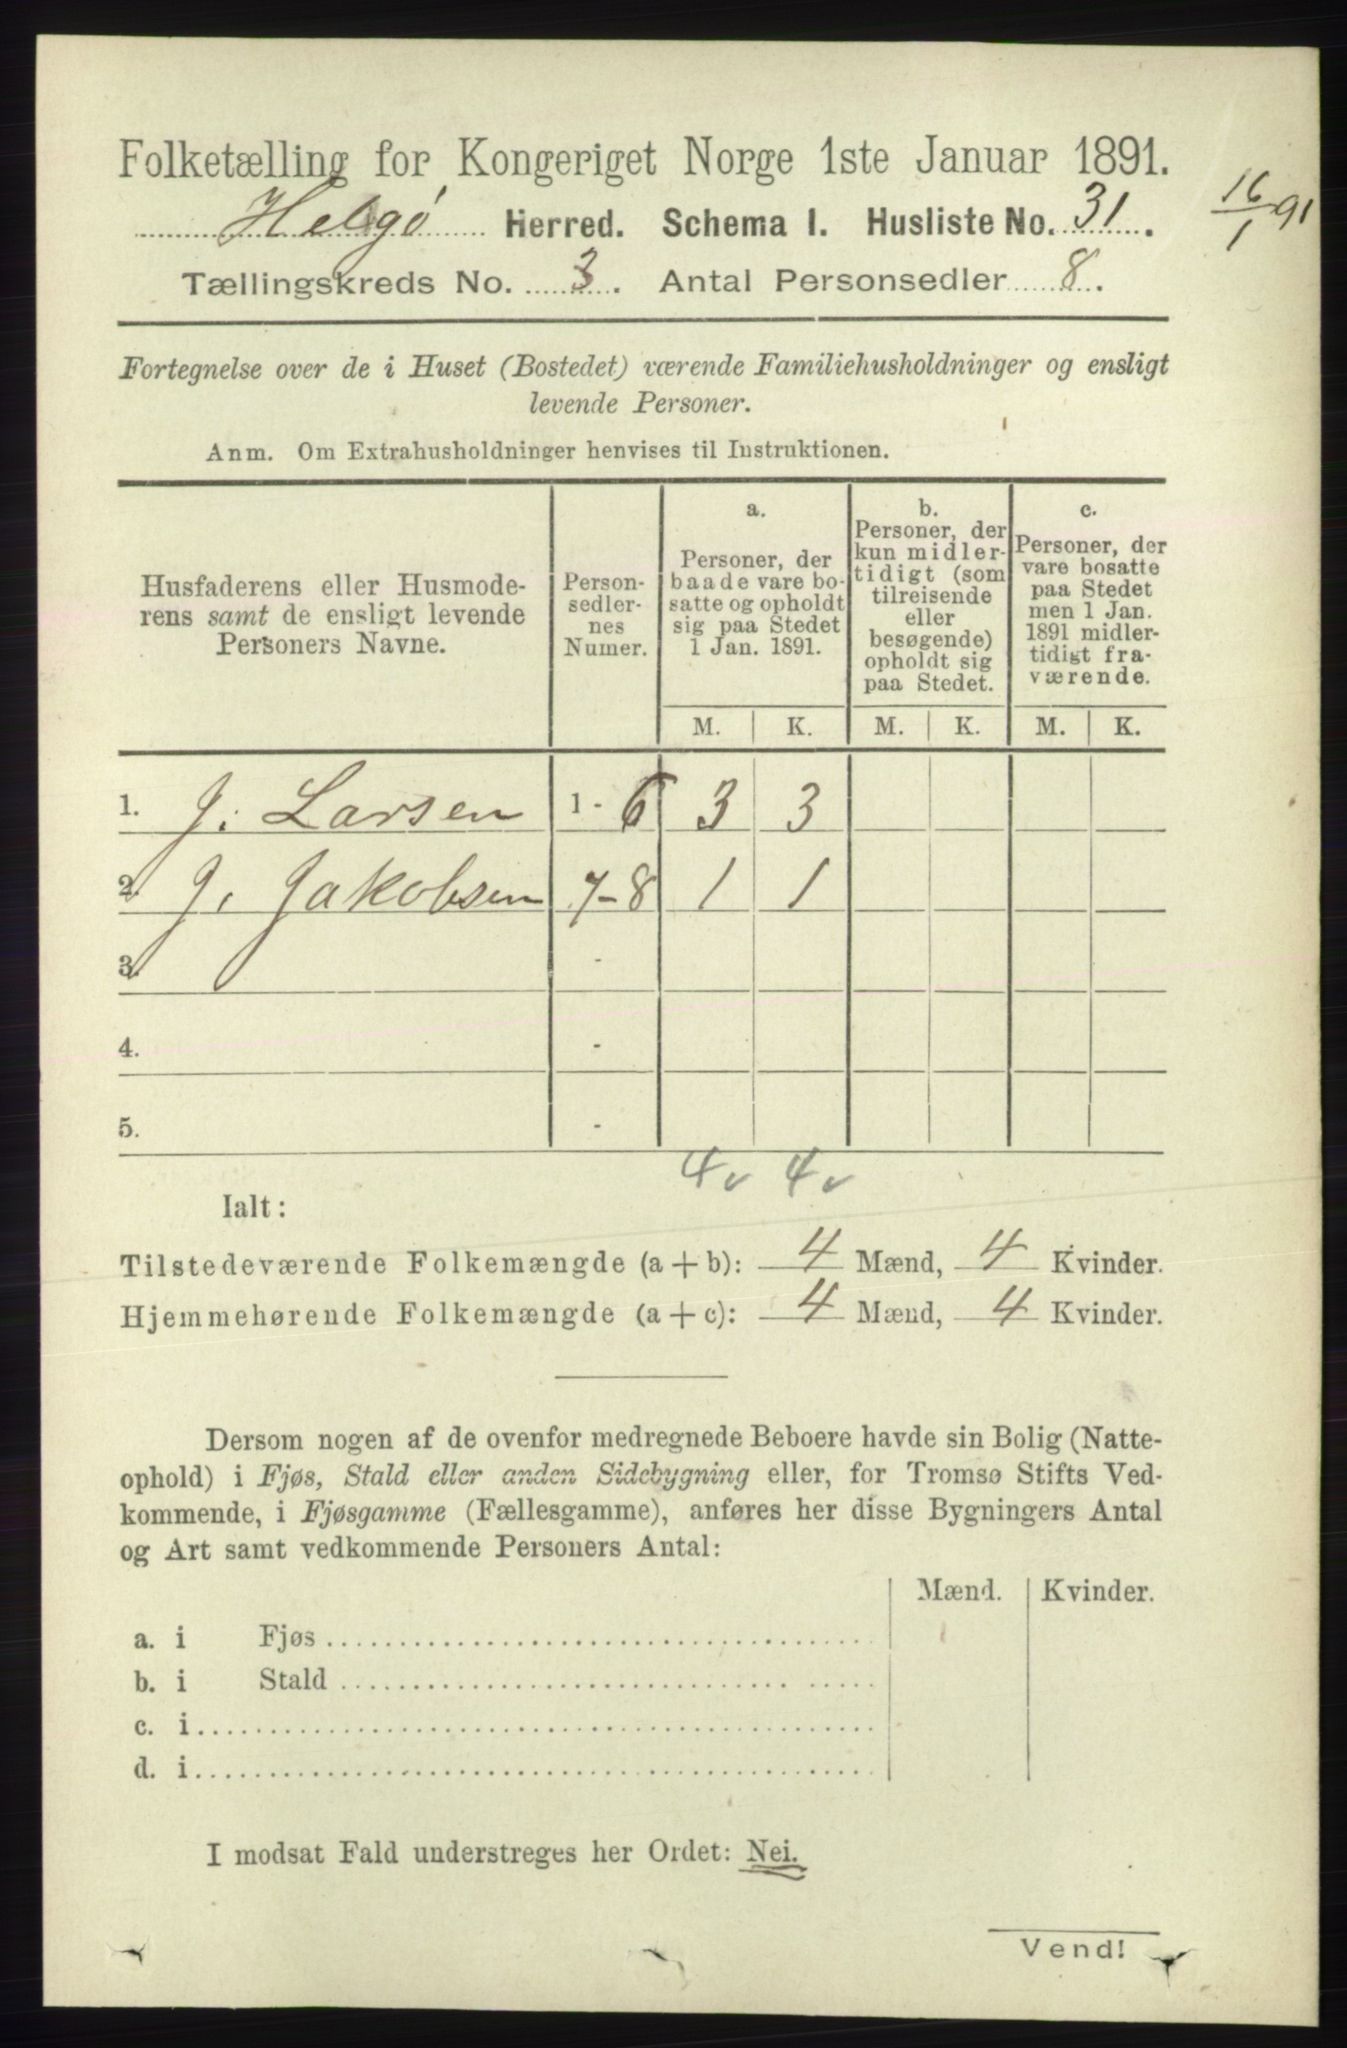 Folketælling for Kongeriget Norge 1ste Januar 1891.
Helgø Herred. Schema I. Husliste No. 31.
16/1 91
Tællingskreds No. 3. Antal Personsedler 8.
Fortegnelse over de i Huset (Bostedet) værende Familiehusholdninger og ensligt
levende Personer.
Anm. Om Extrahusholdninger henvises til Instruktionen.
Husfaderens eller Husmode-
rens samt de ensligt levende
Personers Navne.
Person-
sedler-
nes
Numer.
a.
Personer, der
baade vare bo-
satte og opholdt
sig paa Stedet
1 Jan. 1891.
b.
Personer, der
kun midler-
tidigt (som
tilreisende
eller
besøgende)
opholdt sig
paa Stedet.
c.
Personer, der
vare bosatte
paa Stedet
men 1 Jan.
1891 midler-
tidigt fra-
værende.
M. K. M. K. M. K.
1. J. Larsen 1 - 6 3 3
2. J. Jakobsen 7-8 1 1
3. -
4. -
5. -
4 v 4 v
Ialt:
Tilstedeværende Folkemængde (a + b): 4 Mænd, 4 Kvinder.
Hjemmehørende Folkemængde (a + c): 4 Mænd, 4 Kvinder.
Dersom nogen af de ovenfor medregnede Beboere havde sin Bolig (Natte-
ophold) i Fjøs, Stald eller anden Sidebygning eller, for Tromsø Stifts Ved-
kommende, i Fjøsgamme (Fællesgamme), anføres her disse Bygningers Antal
og Art samt vedkommende Personers Antal:
Mænd. Kvinder.
a. i Fjøs
b. i Stald
c. i
d. i
I modsat Fald understreges her Ordet: Nei.
Vend!